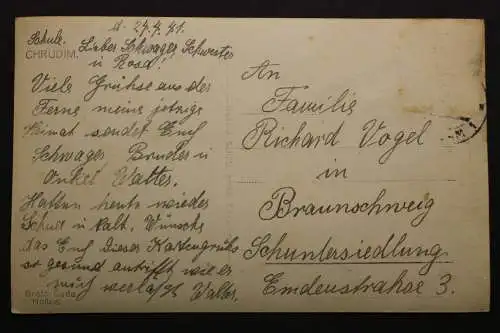 d. 24.4.41.
Schule.
CHRUDIM.
Lieber Schwager, Schwester
u Rosa!
Viele Grühse aus der
Ferne meine jetzige
Heimat sendet Euch
Schwager, Bruder u
Onkel Walter.
Hatten heute wieder
u kalt. Wünsche
das Euch Dieser Kartengruhs
so gesund antrifft wie er
mich verläßt Walter.
An
Familie
Richard Vogel
in
Braunschweig
Schuntersiedlung
Emdenstrahse 3.